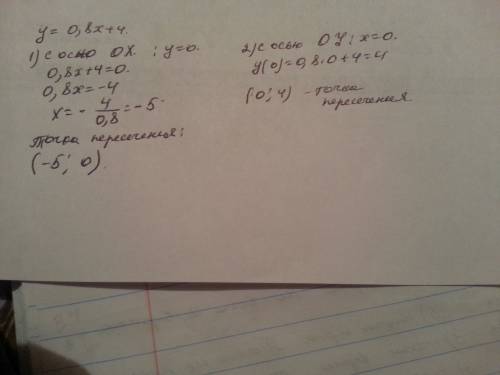 y = 0,8x+4.
1) с осью OX : y=0.
0,8x+4=0.
0,8x=-4
x= - 4/0,8 = -5
Точка пересечения:
(-5; 0).
2) с осью OY: x=0.
y(0)=0,8·0+4=4
(0; 4) - точка
пересечения